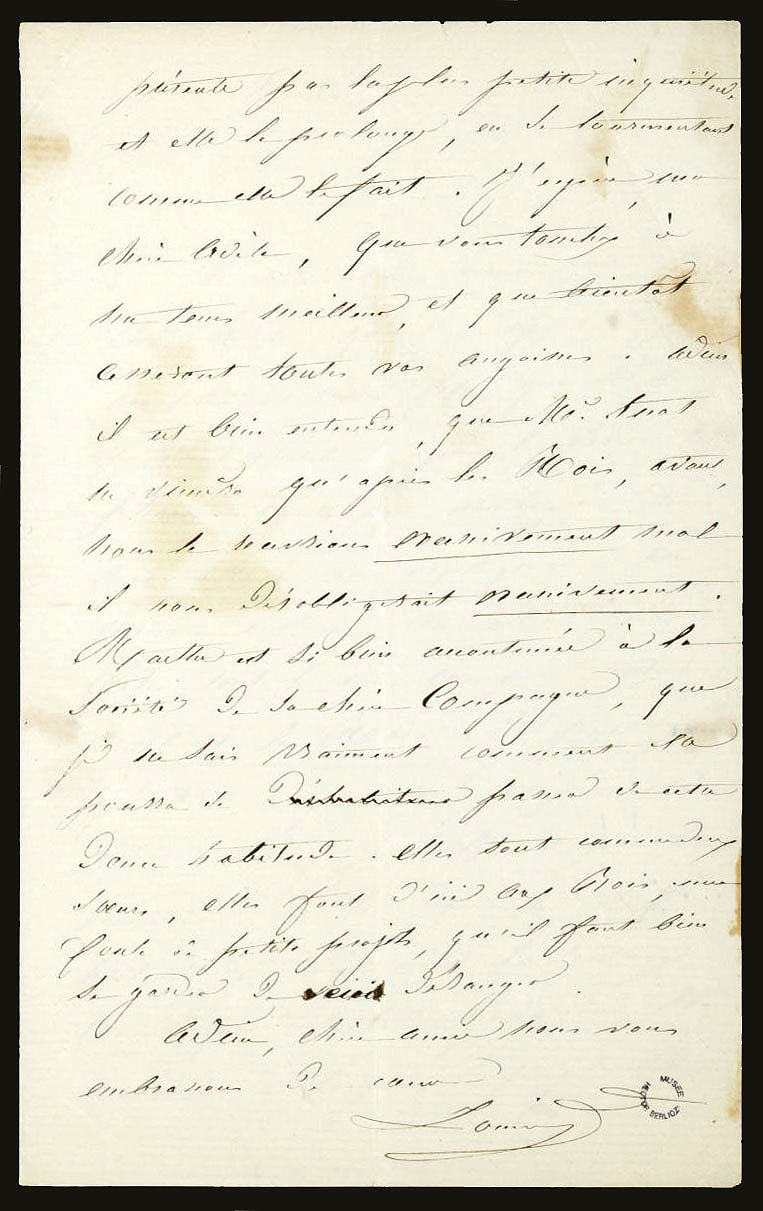 présente pas la plus petite inquiétude
et elle le prolonge, en se tourmentant
comme elle le fait. J'espère, ma
chère Adèle, que vous touchez à
un tems meilleur, et que bientôt
cesseront toutes vos angoisses. Adieu
il est bien entendu, que Mr. Suat
ne viendra qu'après les Rois, avant,
nous le recevrions excessivement mal
il nous désobligerait excessivement.
Mathilde est si bien accoutumée à la
Société de sa chère Compagne, que
je ne sais vraiment comment elle
pourra se passer de cette
douce habitude. elles sont comme deux
sœurs, elles font d'ici aux Rois, une
foule de petits projets, qu'il faut bien
se garder de déranger.
Adieu, chère amie nous vous
embrassons de cœur
Louise
MUSEE HECTOR BERLIOZ